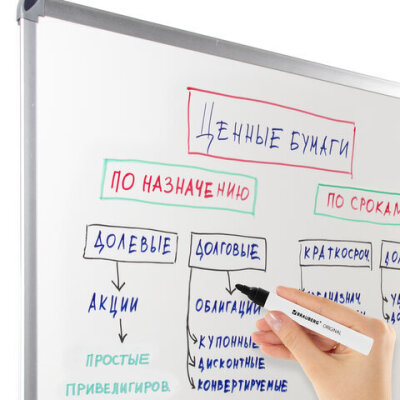 ЦЕННЫЕ БУМАГИ
ПО НАЗНАЧЕНИЮ
ПО СРОКАМ
ДОЛЕВЫЕ
ДОЛГОВЫЕ
КРАТКОСРОЧ
АКЦИИ
ОБЛИГАЦИИ
ПРОСТЫЕ
ПРИВЕЛИГИРОВ.
КУПОННЫЕ
ДИСКОНТНЫЕ
КОНВЕРТИРУЕМЫЕ
BRAUBERG ORIGINAL